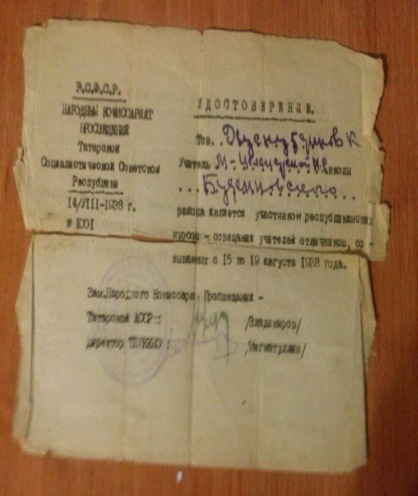 Р.С.Ф.С.Р.
НАРОДНЫЙ КОМИССАРИАТ
ПРОСВЕЩЕНИЯ
Татарской
Социалистической Советской
Республики
14/VIII-1938 г.
№ 1001
УДОСТОВЕРЕНИЕ.
Тов.
Учитель школы
Буденновского
района является участником республиканских
курсов - совещания учителей отличников, со-
зываемых с 15 по 19 августа 1938 года.
Зам.Народного Комиссара Просвещения -
Татарской АССР: /Владимиров/
Директор /Нигматуллин/